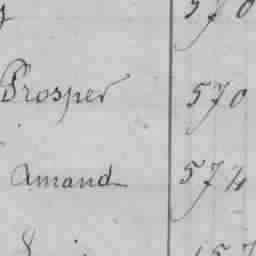 570
Prosper 570
Amand 574